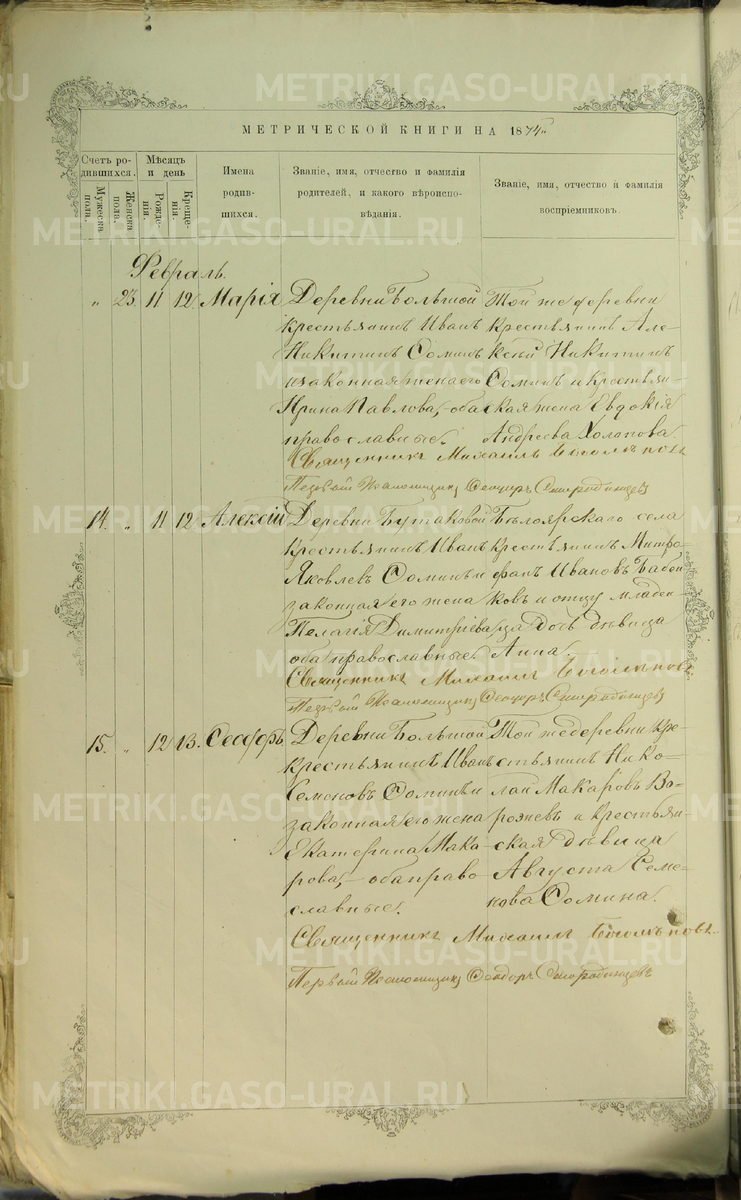 МЕТРИЧЕСКОЙ КНИГИ НА 1874
Счетъ родившихся.
Мужеска пола.
Женска пола.
Мѣсяцъ и день
Рожденія.
Крещенія.
Имена родившихся.
Званіе, имя, отчество и фамилія родителей, и какого вѣроисповѣданія.
Званіе, имя, отчество и фамилія воспріемниковъ.
Февраль.
„ 23. 11 12 Марія
Деревни Большой
крестьянинъ Иванъ
Никитинъ Соминъ
и законная жена его
Ирина Павлова, оба
православные.
Той же деревни
крестьянинъ Але-
ксѣй Никитинъ
Соминъ и крестьян-
ская жена Евдокія
Андреева Холопова
Священникъ Михаилъ
Первый Псаломщикъ Ѳеодоръ Смородинцевъ
14. „ 11 12 Алексій
Деревни Бутаковой
крестьянинъ Иванъ
Яковлевъ Соминъ и
законная его жена
Пелагія Димитріева
оба православные.
Бѣлоярскаго села
крестьянинъ Митро-
фанъ Ивановъ Бабен-
ковъ и отцу младен-
ца дочь дѣвица
Анна.
Священникъ Михаилъ
Первый Псаломщикъ Ѳеодоръ Смородинцевъ
15. „ 12 13. Ѳеодоръ
Деревни Большой
крестьянинъ Иванъ
Семеновъ Соминъ и
законная его жена
Екатерина Мака-
рова, оба право-
славные.
Той же деревни кре-
стьянинъ Нико-
лай Макаровъ Во-
рожевъ и крестьян-
ская дѣвица
Августа Семе-
нова Сомина.
Священникъ Михаилъ
Первый Псаломщикъ Ѳеодоръ Смородинцевъ
METRIKI.GASO-URAL.RU